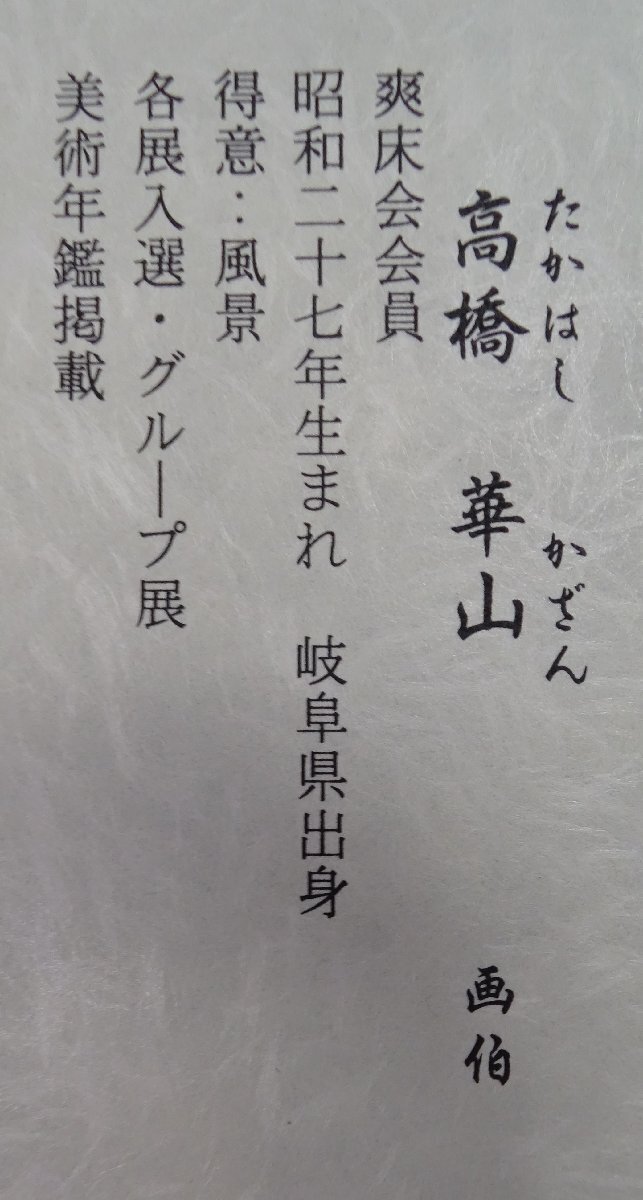 たかはし かざん
高橋 華山 画伯
爽床会会員
昭和二十七年生まれ 岐阜県出身
得意：風景
各展入選・グループ展
美術年鑑掲載